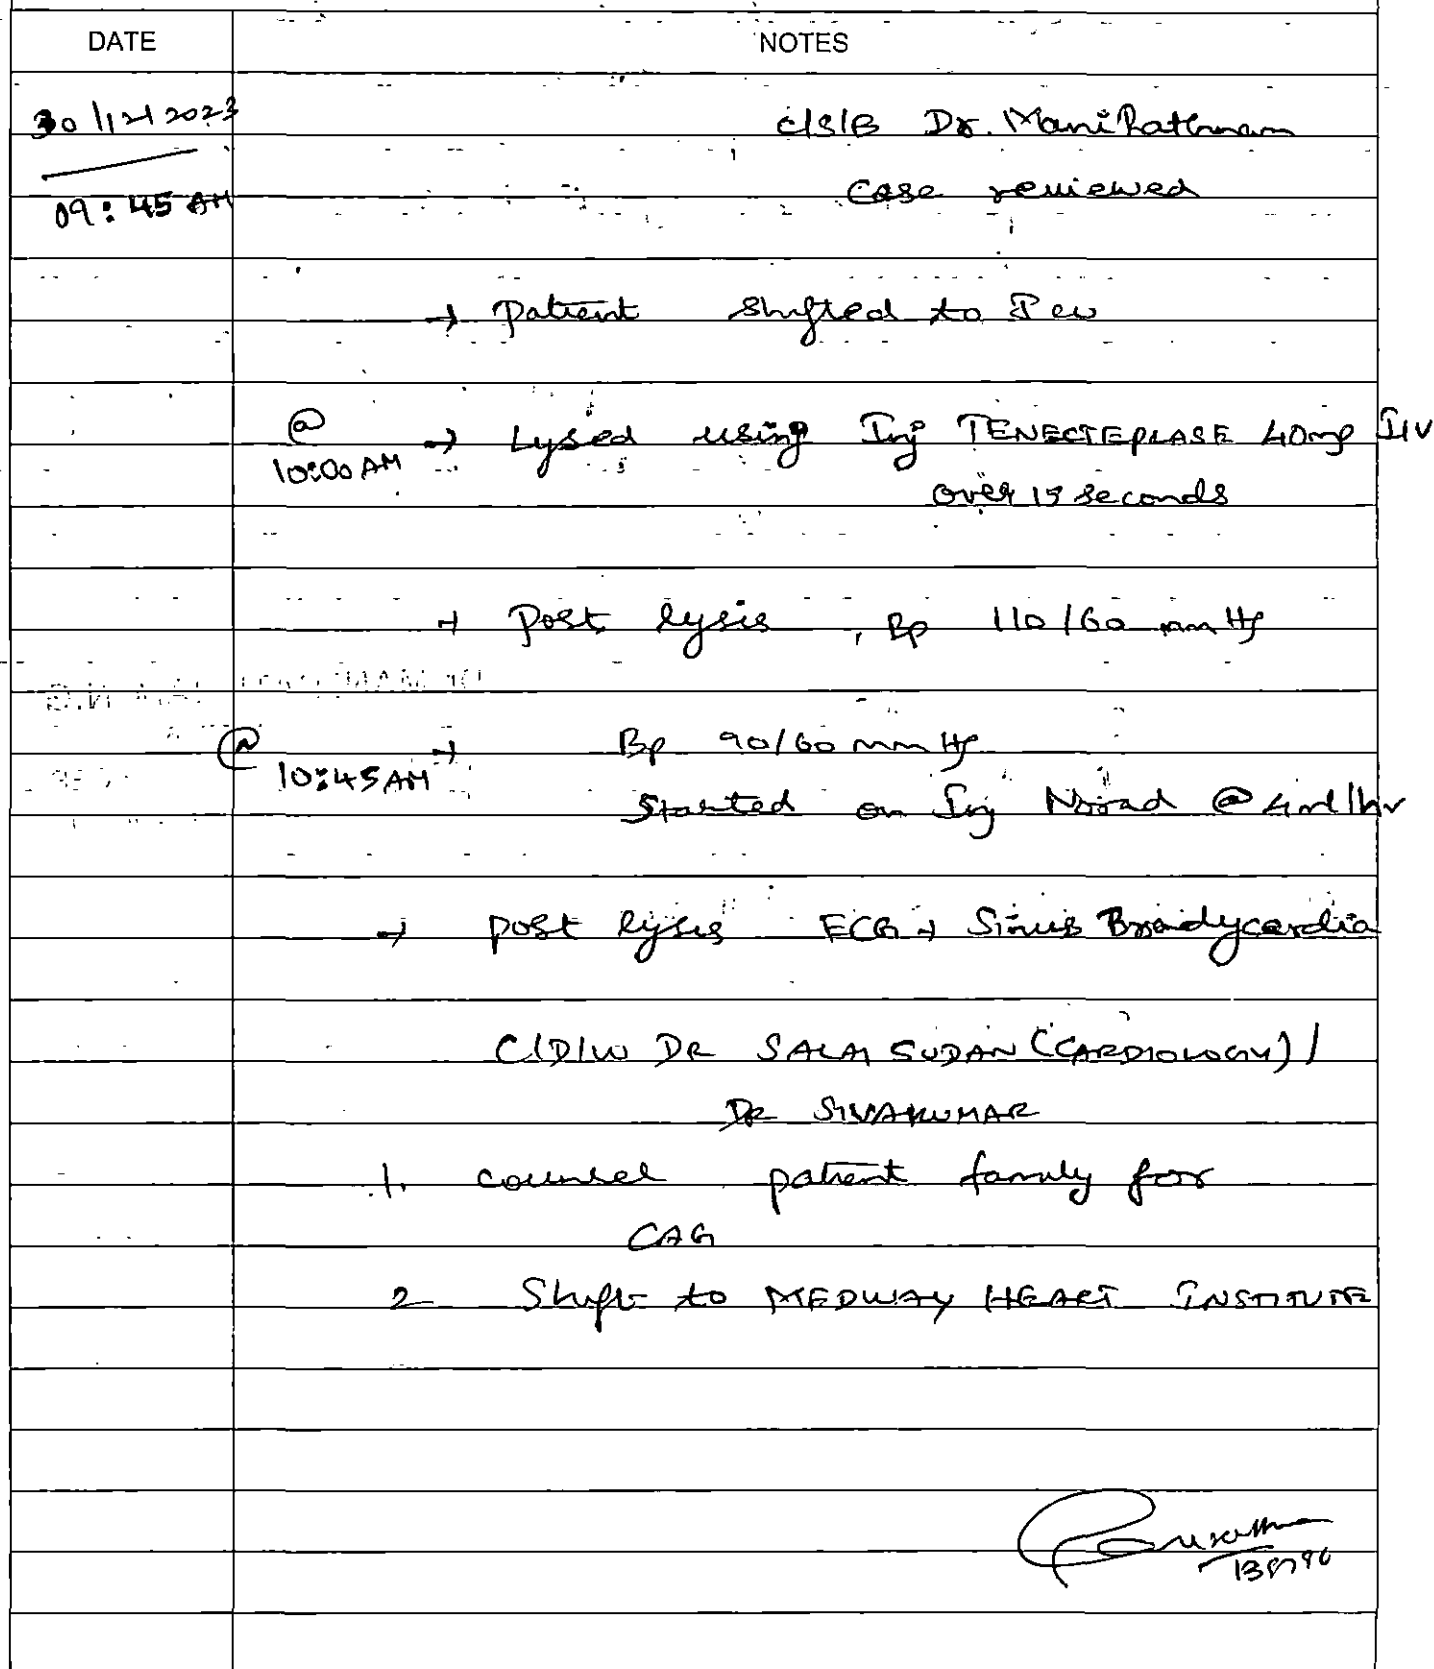 DATE NOTES
30/12/2023 C/S/B Dr. ManiRathnam
09:45 AM Case reviewed
→ Patient shifted to ICU
@ 10:00 AM → Lysed using Inj TENECTEPLASE 40mg I/V
over 15 seconds
→ Post lysis, Bp 110/60 mm Hg
@ 10:45 AM → Bp 90/60 mm Hg
Started on Inj Norad @ 4ml/hr
→ post lysis ECG → Sinus Bradycardia
C/D/W DR SALAI SUDAN (CARDIOLOGY) /
DR SIVAKUMAR
1. counsel patient family for
CAG
2 Shift to MEDWAY HEART INSTITUTE